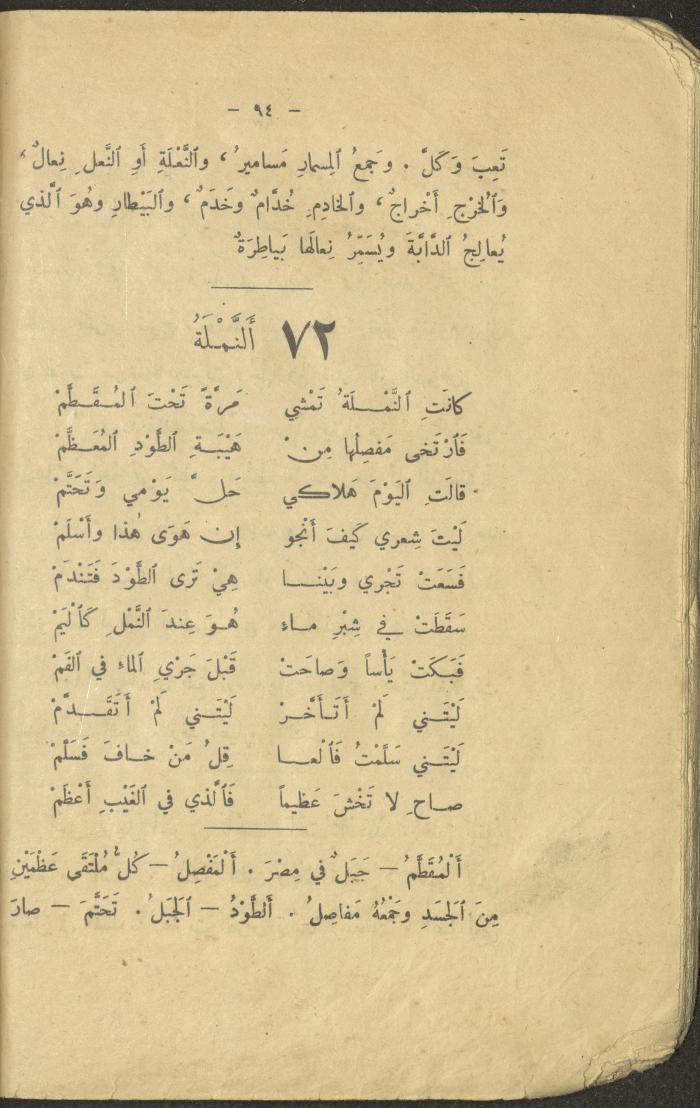 – ٩٤ –
تَعِبَ وَكَلَّ . وجَمعُ ٱلمِسمارِ مَساميرُ ، وٱلنَّعْلَةِ أَوِ ٱلنَّعلِ نِعالٌ ،
وَٱلخُرْجِ أَخْراجٌ ، وٱلخادِمِ خُدَّامٌ وخَدَمٌ ، وٱلبَيْطارِ وهُوَ ٱلَّذي
يُعالِجُ ٱلدَّابَّةَ ويُسَمِّرُ نِعالَها بَياطِرَةٌ
٧٢ أَلنَّمْلَةُ
كانَتِ ٱلنَّمْلَةُ تَمْشي مَرَّةً تَحْتَ ٱلمُقَطَّمْ
فَٱرْتَخى مَفصِلُها مِنْ هَيْبَةِ ٱلطَّوْدِ ٱلمُعَظَّمْ
قالَتِ ٱليَوْمَ هَلاكي حَلَّ يَوْمي وَتَحَتَّمْ
لَيْتَ شِعري كَيفَ أَنْجو إِن هَوَى هٰذا وأَسْلَمْ
فَسَعَتْ تَجْري وبَيْنا هِيْ تَرى ٱلطَّوْدَ فَتَنْدَمْ
سَقَطَتْ في شِبْرِ ماءِ هُوَ عِندَ ٱلنَّمْلِ كَٱلْيَمْ
فَبَكَتْ يَأْساً وَصاحَتْ قَبْلَ جَرْيِ ٱلماءِ في ٱلفَمْ
لَيْتَني لَمْ أَتَأَخَّرْ لَيْتَني لَمْ أَتَقَدَّمْ
لَيْتَني سَلَّمْتُ فَٱلْعا قِلُ مَنْ خافَ فَسَلَّمْ
صاحِ لا تَخْشَ عَظيماً فَٱلَّذي في ٱلغَيْبِ أَعْظَمْ
أَلْمُقَطَّمُ – جَبَلٌ في مِصْرَ . أَلْمَفْصِلُ – كُلُّ مُلْتَقَى عَظْمَيْنِ
مِنَ ٱلجَسَدِ وجَمْعُهُ مَفاصِلُ . أَلطَّوْدُ – ٱلجَبَلُ . تَحَتَّمَ – صارَ